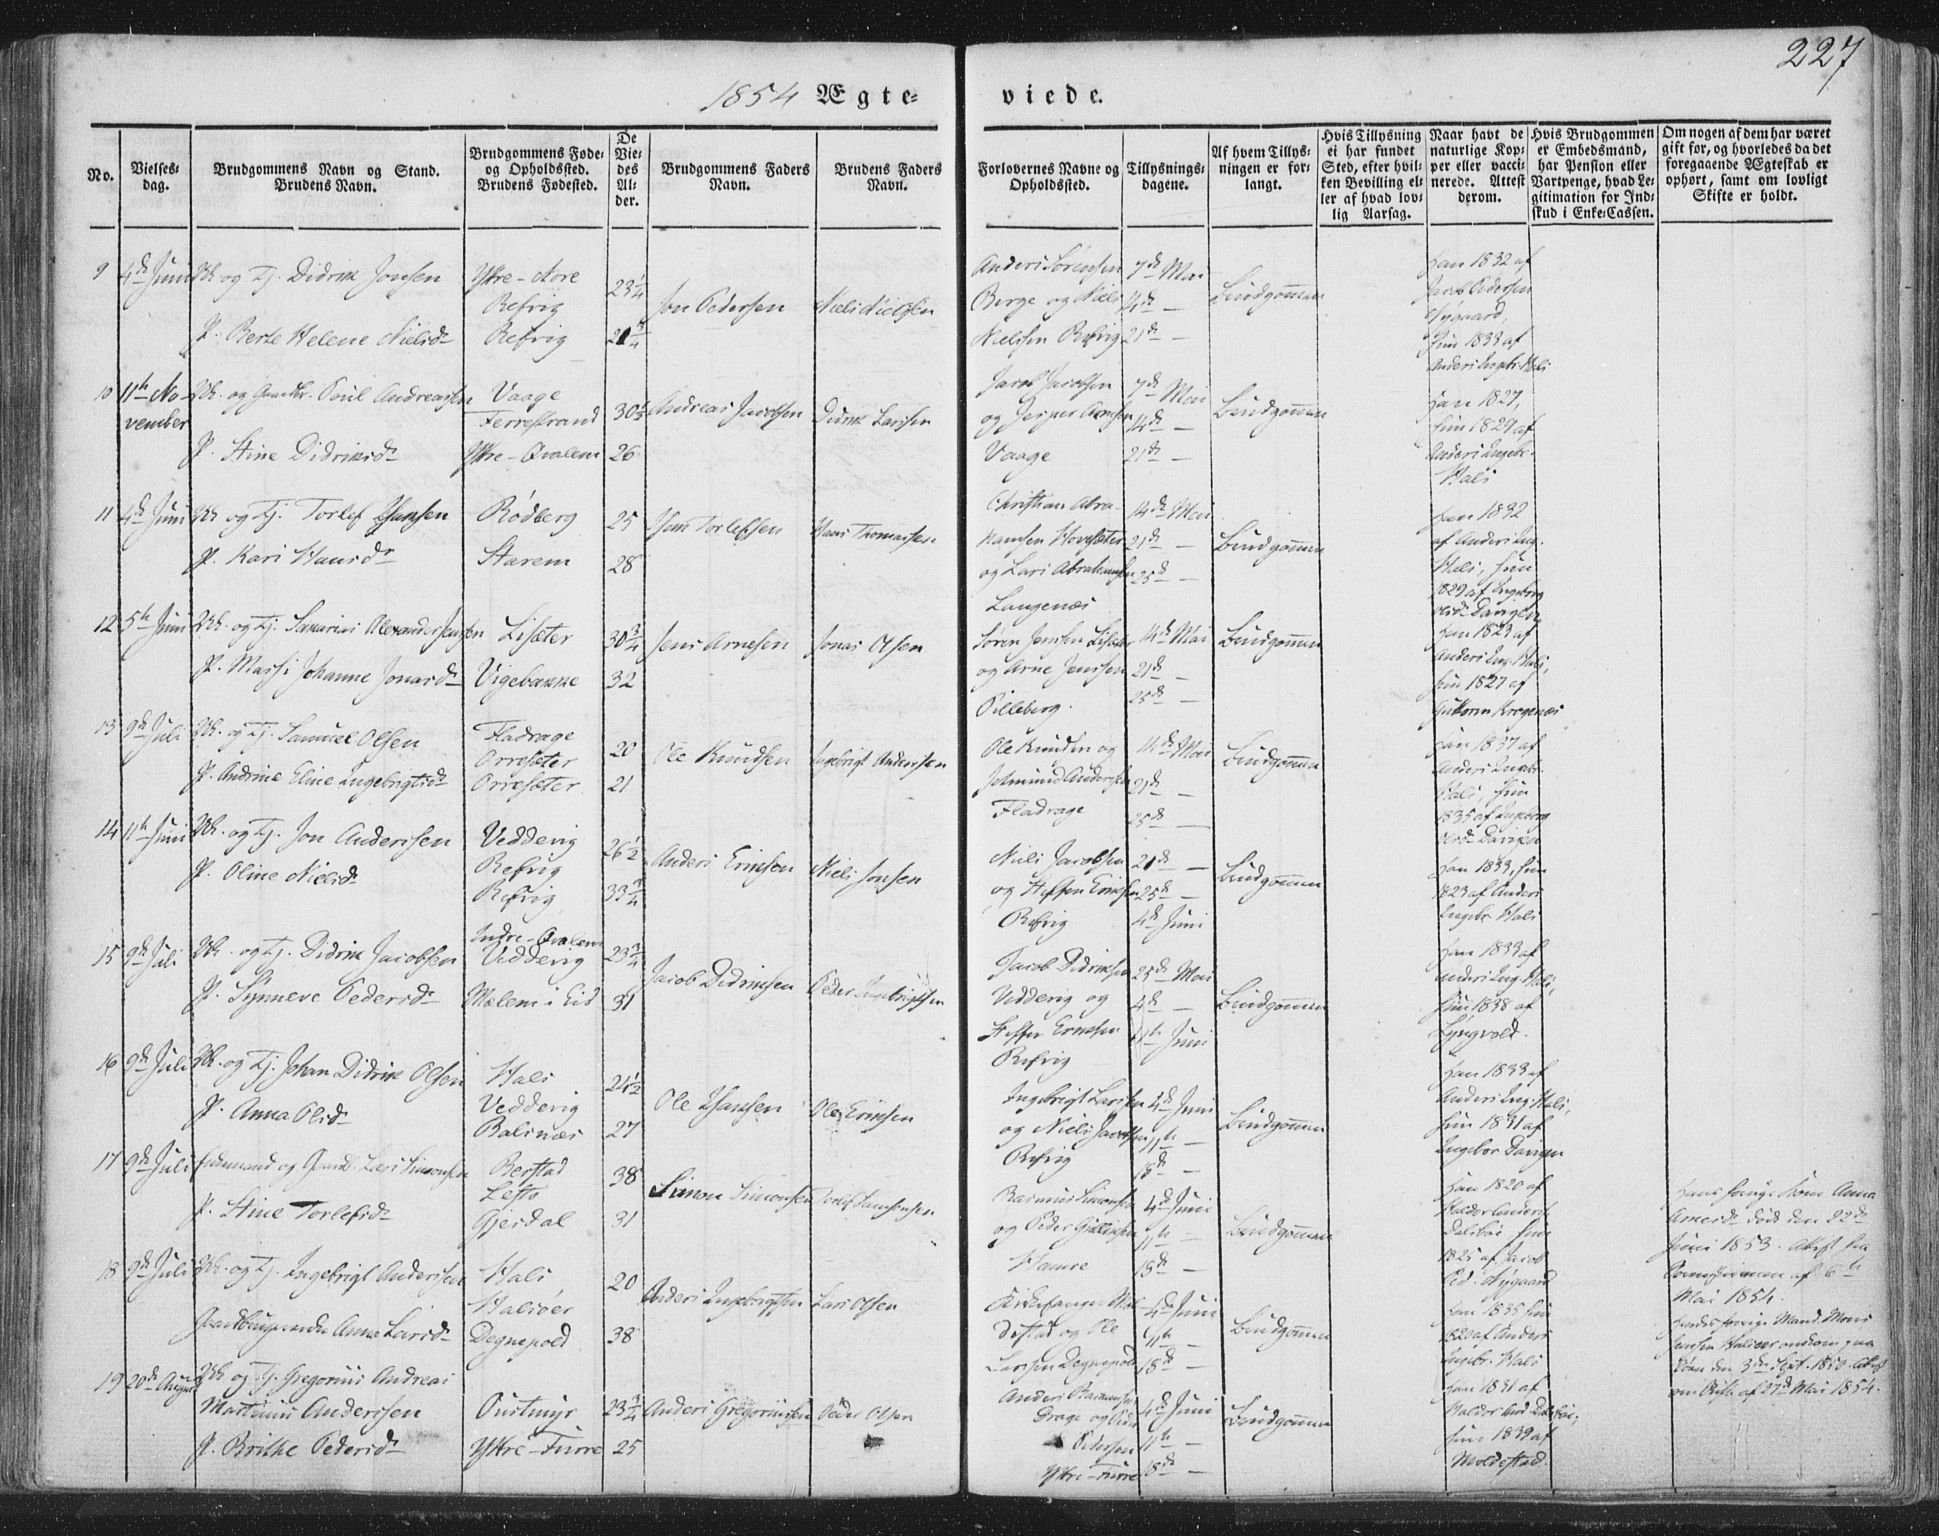 227
1854 Ægte-
viede.
No.
Vielses-
dag.
Brudgommens Navn og Stand.
Brudens Navn.
Brudgommens Føde-
og Opholdssted.
Brudens Fødested.
De
Vie-
des
Al-
der.
Brudgommens Faders
Navn.
Brudens Faders
Navn.
Forlovernes Navne og
Opholdssted.
Tillysnings-
dagene.
Af hvem Tillys-
ningen er for-
langt.
Hvis Tillysning
ei har fundet
Sted, efter hvil-
ken Bevilling el-
ler af hvad lov-
lig Aarsag.
Naar havt de
naturlige Kop-
per eller vacci-
nerede. Attest
derom.
Hvis Brudgommen
er Embedsmand,
har Pension eller
Vartpenge, hvad Le-
gitimation for Ind-
skud i Enke-Cassen.
Om nogen af dem har været
gift før, og hvorledes da det
foregaaende Ægteskab er
ophørt, samt om lovligt
Skifte er holdt.
9 4de Juni og Tj. Didrik Jonsen
P. Berte Helene Nielsd.
Refvig
Refvig
23 1/4
21 3/4
Jon Pedersen
Niels Nielsen
Anders Sørensen
Berge og Niels
Nielsen Refvig
7de Mai
14de —
21de —
Brudgommen
Han 1832 af
Jacob Pedersen
Nygaard,
Hun 1833 af
Anders Ingebr. Hals
10 11te No-
vember
og Gaardbr. Poul Andreassen
P. Stine Didriksd.
Vaage
Ferrestrand
Ytre-Qvalem
30 1/2
26
Andreas Jacobsen
Didrik Larsen
Jacob Jacobsen
og Jesper Arnesen
Vaage
7de Mai
14de —
21de —
Brudgommen
Han 1827,
Hun 1829 af
Anders Ingebr.
Hals
11 4de Juni og Tj. Torlef Hansen
P. Kari Hansd.
Rødberg
Starem
25
28
Hans Torlefsen
Hans Thomassen
Christian Abra-
hamsen Hovesæter
og Lars Abrahamsen
Langenæs
14de Mai
21de —
25de —
Brudgommen
Han 1832
af Anders Ing.
Hals, Hun
1829 af Ingeborg
12 5te Juni og Tj. Samarias Alexander Jensen
P. Massi Johanne Jonasd.
Lisæter
Vigebakke
30 3/4
32
Jens Arnesen
Jonas Olsen
Søren Jensen Lisæter
og Arne Jenssen
Pilleberg.
14de Mai
21de —
25de —
Brudgommen
Han 1823 af
Anders Ing. Hals,
Hun 1827 af
Guttorm Krogenæs
13 9de Juli og Tj. Samuel Olsen
P. Andrine Eline Ingebrigtsd.
Fladrage
Orresæter
Orresæter
20
21
Ole Knudsen
Ingebrigt Anderssen
Ole Knudsen og
Fladrage
14de Mai
21de —
25de —
Brudgommen
Han 1837 af
Anders Ingebr.
Hals, Hun
1835 af Ingeborg
14 11te Juni og Tj. Jon Anderssen
P. Oline Nielsd.
Vedvig
Refvig
Refvig
26 1/2
33 3/4
Anders Eriksen
Niels Jonsen
Niels Jacobsen
og Steffen Eriksen
Refvig
21de —
25de —
4de Juni
Brudgommen
Han 1833, Hun
1823 af Anders
Ingebr. Hals
15 9de Juli og Tj. Didrik Jacobsen
P. Synneve Pedersd.
Indre-Qvalem
Vedvig
Mælem i Eid
23 3/4
31
Jacob Didriksen
Peder Ingebrigtsen
Jacob Didriksen
Vedvig og
Steffen Eriksen
Refvig
25de Mai
4de —
11te Juni
Brudgommen
Han 1833 af
Anders Ing. Hals,
Hun 1838 af
Lyngvold.
16 9de Juli og Tj. Johan Didrik Olsen
P. Anna Olsd.
Hals
Vedvig
Balsnæs
24 1/2
27
Ole Hansen
Ole Eriksen
Ingebrigt Larsen
og Niels Jacobsen
Refvig
4de Juni
11te —
18de —
Brudgommen
Han 1833 af
Anders Ing. Hals,
Hun 1831 af
17 9de Juli Enkemand og Gaardb. Lars Simonsen
P. Stine Torlefsd.
Berstad
Lefto
Gjerdal
38
31
Simon Simonsen
Torlef Samsonsen
Rasmus Simonsen
og Peder
Hamre
4de Juni
11te —
18de —
Brudgommen
Han 1820 af
Halder Anders.
Dalsbø Hun
1825 af Jacob
Ped. Nygaard
Hans forrige Kone Anna
Arnesd. død den 22de
Juni 1853. Attest fra
af 6te
Mai 1854.
18 9de Juli og Tj. Ingebrigt Anderssen
Gaardbrugerenke Anna Larsd.
Hals
Halsøer
Degnepold
20
38
Anders Ingebrigtsen
Lars Olsen
Kirkesanger Mol-
destad og Ole
Larssen Degnepold
4de Juni
11te —
18de —
Brudgommen
Han 1835 Hun
1820 af Anders
Ingebr. Hals
Hendes forrige Mand Mons
Jensen Halsøer omkom paa
Søen den 3de Sept. 1850. Attest
om Skifte af 27de Mai 1854.
19 20de August og Tj. Gregorius Andreas
Martinus Anderssen
P. Brithe Pedersd.
Oustmyr
Ytre-Furre
23 3/4
25
Anders Gregoriussen
Peder Olsen
Anders Rasmussen
Drage og Peder
Pedersen
Ytre-Furre
4de Juni
11te —
18de —
Brudgommen
Han 1831 af
Haldor And. Dalsbø,
Hun 1839 af
Moldestad.